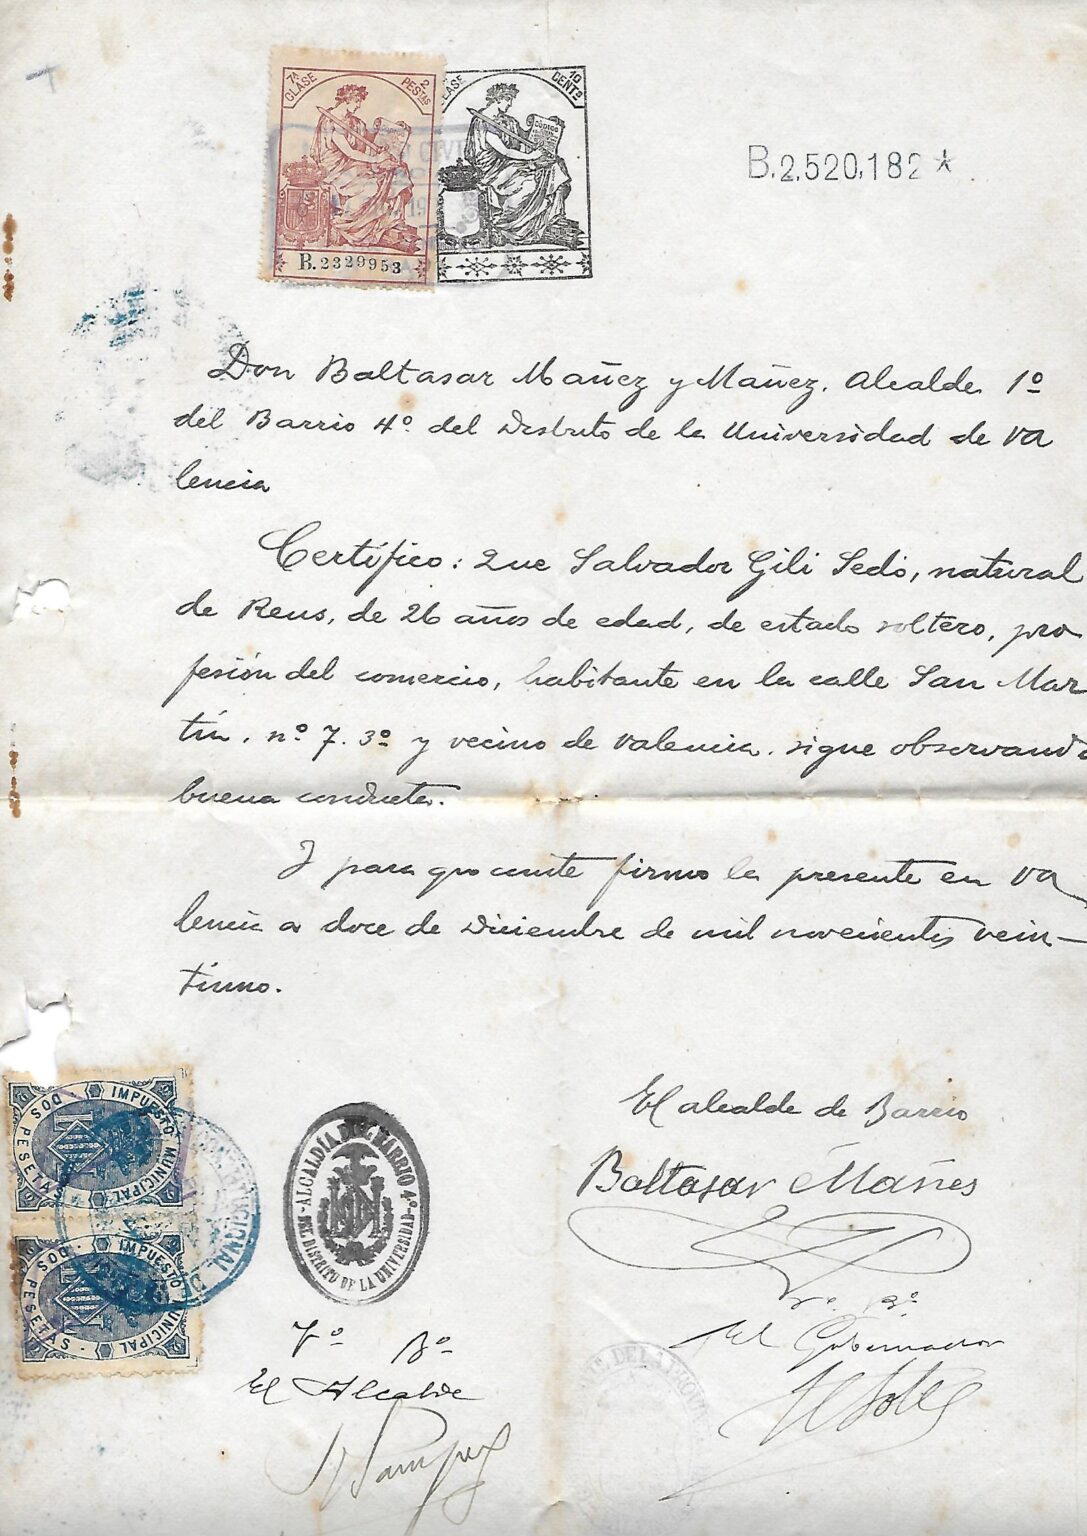 7ª CLASE 2 PESTAS
CLASE 10 CENTº
CODIGO
CIVIL
B.2329953
B.2,520,182*
Don Baltasar Mañez y Mañez, Alcalde 1º
del Barrio 4º del Distrito de la Universidad de Va
lencia
Certifico: Que Salvador Gili Sedó, natural
de Reus, de 26 años de edad, de estado soltero, pro
fesión del comercio, habitante en la calle San Mar
tín, nº 7. 3º y vecino de Valencia, sigue observando
buena conducta.
Y para que conste firmo la presente en Va
lencia a doce de Diciembre de mil novecientos vein-
tiuno.
El alcalde de Barrio
Baltasar Mañes
Vº Bº
El Gobernador
IMPUESTO MUNICIPAL
DOS PESETAS
IMPUESTO MUNICIPAL
DOS PESETAS
CONSTITUCIONAL
ALCALDÍA DEL BARRIO 4º
DEL DISTRITO DE LA UNIVERSIDAD
Vº Bº
El Alcalde